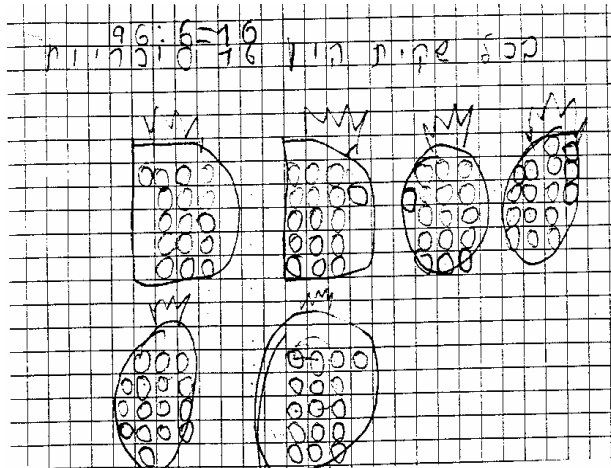 96:6=16
בכל שקית היו 16 סוכריות